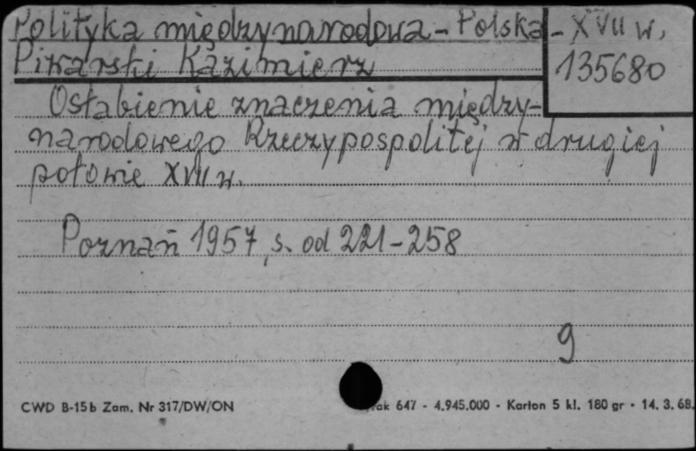 Polityka międzynarodowa - Polska - XVII w.
Piwarski Kazimierz
135680
Osłabienie znaczenia między-
narodowego Rzeczypospolitej w drugiej
połowie XVII w.
Poznań 1957, s. od 221-258
9
CWD B-15b Zam. Nr 317/DW/ON
ak 647 - 4.945.000 - Karton 5 kl. 180 gr - 14. 3. 68.